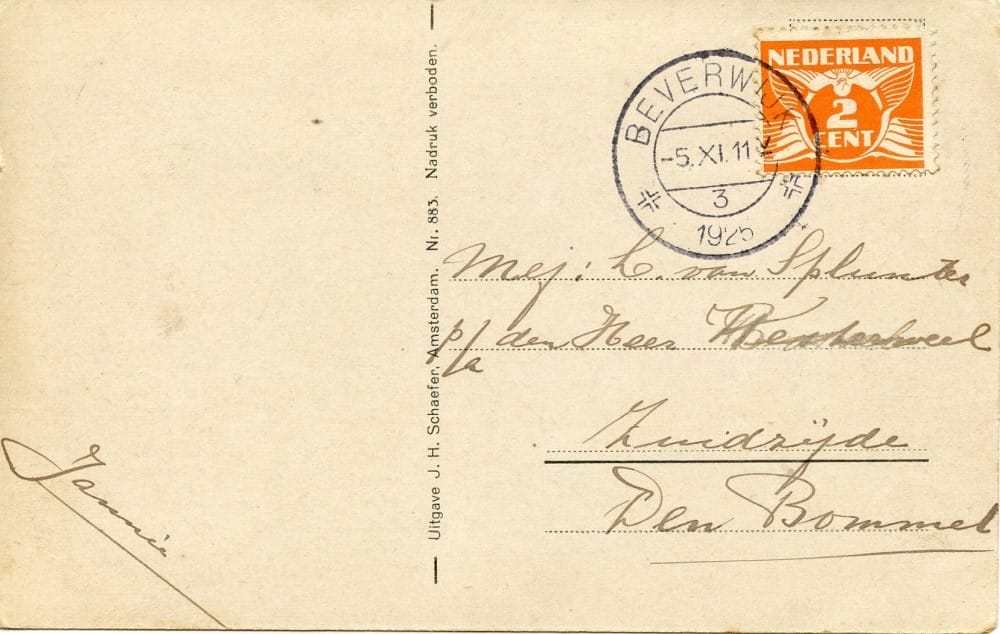 NEDERLAND
2
CENT
BEVERWIJK
-5.XI.11
3
1925
Uitgave J. H. Schaefer, Amsterdam. Nr. 883. Nadruk verboden.
Mej: L. van Splunter
p/a den Heer
Zuidzijde
Den Bommel
Jannie